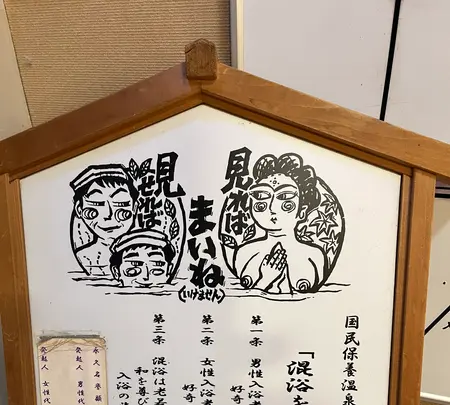 見れば
見せれば
まいね
(いけません)
国民保養温泉
「混浴を
第一条 男性入浴者
好奇
第二条 女性入浴者
好奇
第三条 混浴は老若
和を尊び
入浴の
永久名誉
発起人 男性
発起人 女性代